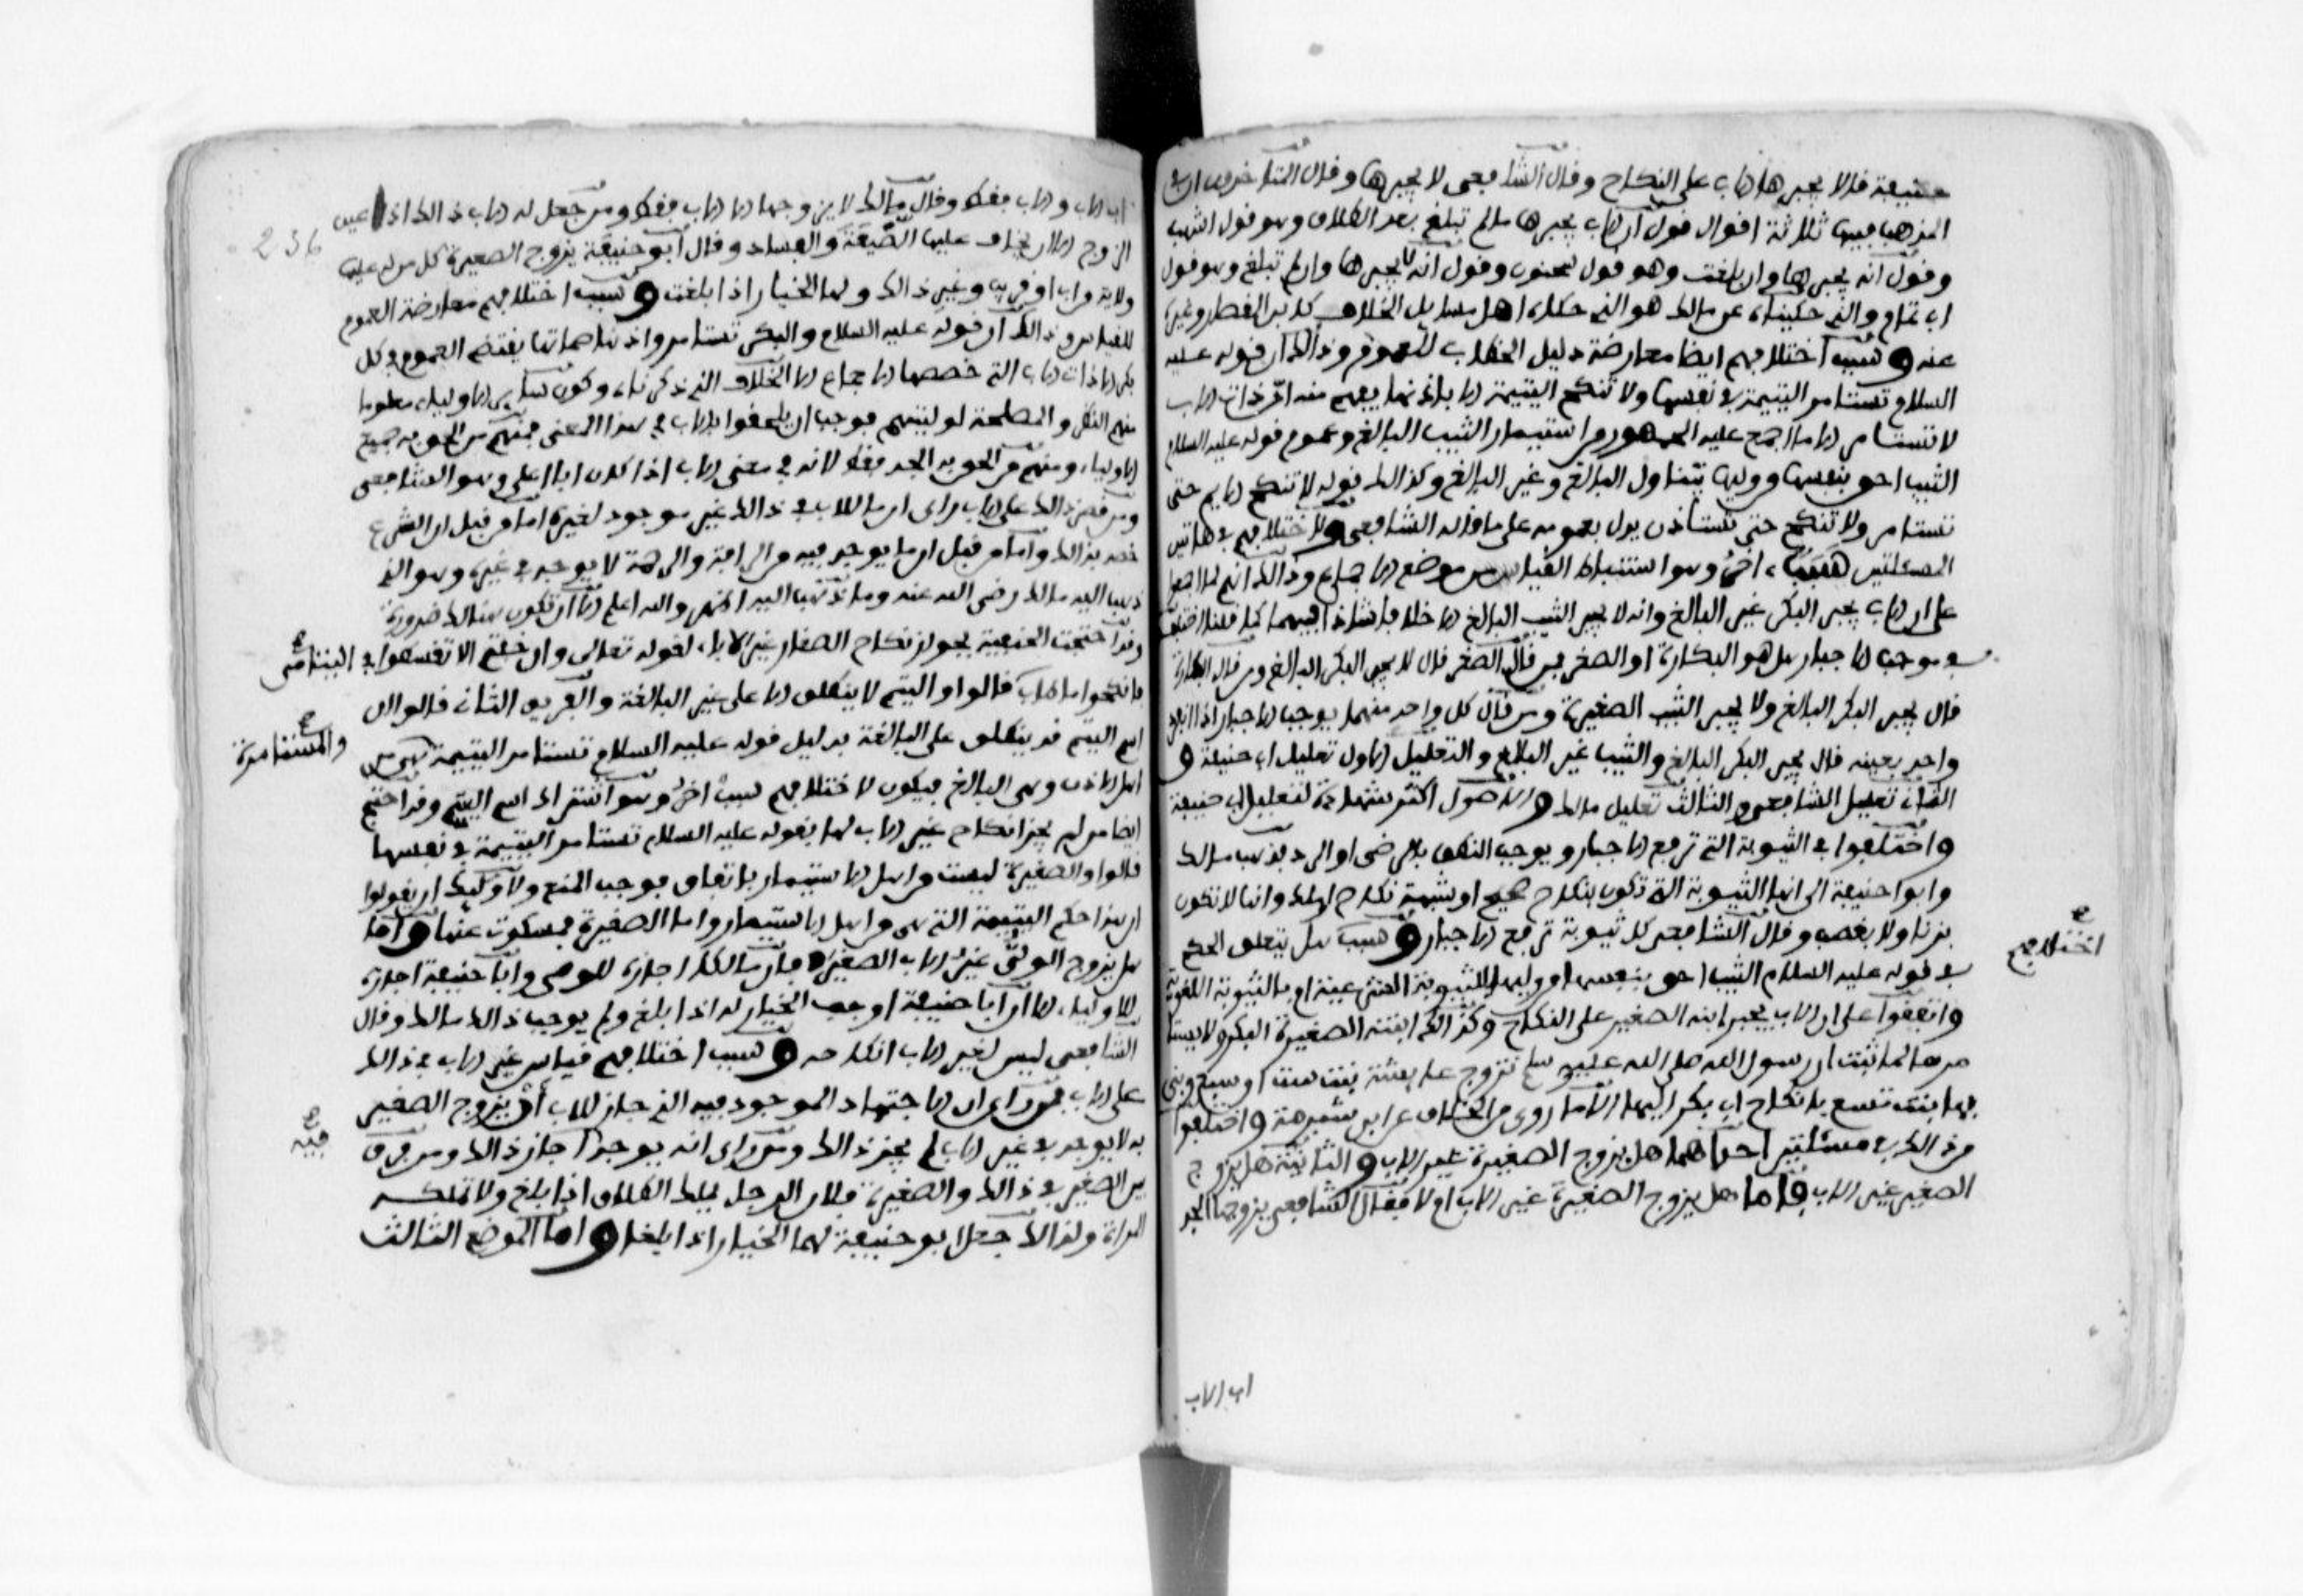 حنيفة قالا يجبرها الاب على النكاح وقال الشافعي لا يجبرها وقال المتأخرون ان في
المذهب فيها ثلاثة اقوال قول ان الاب يجبرها ما لم تبلغ بعد الطلاق وهو قول اشهب
وقول انه يجبرها وان بلغت وهو قول سحنون وقول انه لا يجبرها وان لم تبلغ وهو قول
ابي تمام والذي حكيناه عن مالك هو الذي حكاه اهل مسايل الخلاف كابن القصار وغيره
عنه وسبب اختلافهم ايضا معارضة دليل الخطاب للعموم وذالك ان قوله عليه
السلام تستامر اليتيمة في نفسها ولا تنكح اليتيمة الا باذنها يفهم منه ان ذات الاب
لا تستامر الا ما اجمع عليه الجمهور من استيمار الثيب البالغ وعموم قوله عليه السلام
الثيب احق بنفسها من وليها يتناول البالغ وغير البالغ وكذالك قوله لا تنكح الايم حتى
تستامر ولا تنكح حتى تستاذن يدل بعمومه على ما قاله الشافعي ولاختلافهم في هاتين
المسئلتين سبب اخر وهو استنباط القياس من موضع الاجماع وذالك انهم لما اجمعوا
على ان الاب يجبر البكر غير البالغ وانه لا يجبر الثيب البالغ الا خلافا شاذا فيهما كما قلنا اختلفوا
في موجب الاجبار هل هو البكارة او الصغر فمن قال الصغر قال لا يجبر البكر البالغ ومن قال البكارة
قال يجبر البكر البالغ ولا يجبر الثيب الصغيرة ومن قال كل واحد منهما يوجب الاجبار اذا انفرد
واحد بعينه قال يجبر البكر البالغ والثيب غير البالغ والتعليل الاول تعليل ابي حنيفة و
الثاني تعليل الشافعي والثالث تعليل مالك والاصول اكثر شهادة لتعليل ابي حنيفة
واختلفوا في الثيوبة التي ترفع الاجبار ويوجب النطق بالرضى او الرد فذهب مالك
وابوا حنيفة الى انها الثيوبة التي تكون بنكاح صحيح او شبهة نكاح او ملك وانها لا تكون
بزنا ولا بغصب وقال الشافعي كل ثيوبة ترفع الاجبار وسبب هل يتعلق الحكم
اختلافهم
في قوله عليه السلام الثيب احق بنفسها من وليها بالثيوبة الشرعية او بالثيوبة اللغوية
واتفقوا على ان الاب يجبر ابنه الصغير على النكاح وكذالك ابنته الصغيرة البكر ولا يستا
مرها لما ثبت ان رسول الله صلى الله عليه وسلم تزوج عايشة بنت ست او سبع وبنى
بها ابنت تسع بانكاح ابي بكر اليها الا ما روى من الخلاف عن ابن شبرمة واختلفوا
من ذالك في مسئلتين احداهما هل يزوج الصغيرة غير الاب والثانية هل يزوج
الصغير غير الاب فاما هل يزوج الصغيرة غير الاب ام لا فقال الشافعي يزوجها الجد
اب الاب
اب الاب والاب فقط وقال مالك لا يزوجها الا الاب فقط ومن جعل له الاب ذالك اذا عين
236
الزوج الا ان يخاف عليها الضيعة والفساد وقال ابو حنيفة يزوج الصغيرة كل من له عليها
ولاية من اب او قريب وغير ذالك ولها الخيار اذا بلغت وسبب اختلافهم معارضة العموم
للقياس وذالك ان قوله عليه السلام والبكر تستامر واذنها صماتها يقتضي العموم في كل
بكر الا ذات الاب التي خصصها الاجماع الا الخلاف الذي ذكرناه وكون ساير الاولياء معلوما
منهم النظر والمصلحة لوليتهم يوجب ان يلحقوا بالاب في هذا المعنى فمنهم من الحق به جميع
الاولياء ومنهم من الحق به الجد فقط لانه في معنى الاب اذا كان ابا اعلى وهو الشافعي
ومن قصر ذالك على الاب راى ان ما للاب في ذالك غير موجود لغيره اما من قبل ان الشرع
خصه بذالك واما من قبل ان ما يوجد فيه من الرافة والرحمة لا يوجد في غيره وهو الذي
ذهب اليه مالك رضي الله عنه وما ذهب اليه اظهر والله اعلم الا ان تكون هنالك ضرورة
وقد احتجت الحنفية بجواز نكاح الصغار غير الاباء لقوله تعالى وان خفتم الا تقسطوا في اليتامى
فانكحوا ما طاب قالوا واليتيم لا ينطلق الا على غير البالغة والفريق الثاني قالوا ان
اسم اليتيم قد ينطلق على البالغة بدليل قوله عليه السلام تستامر اليتيمة هي من
والمستامرة
اهل الاذن وهي البالغ فيكون لاختلافهم سبب اخر وهو اشتراك اسم اليتيم وقد احتج
ايضا من لم يجز انكاح غير الاب لها بقوله عليه السلام تستامر اليتيمة في نفسها
قالوا والصغيرة ليست من اهل الاستيمار باتفاق فوجب المنع ولاوليك ان يقولوا
ان هذا حكم اليتيمة التي هي من اهل الاستيمار واما الصغيرة فمسكوت عنها واما
هل يزوج الولي غير الاب الصغير فان مالكا اجازه للوصي وابا حنيفة اجازه
للاولياء الا ان ابا حنيفة اوجب الخيار له اذا بلغ ولم يوجب ذالك مالك وقال
الشافعي ليس لغير الاب انكاحه وسبب اختلافهم قياس غير الاب في ذالك
على الاب فمن راى ان الاجتهاد الموجود فيه الذي جاز للاب ان يزوج الصغير
فيه
به لا يوجد في غير الاب لم يجز ذالك ومن راى انه يوجد اجاز ذالك ومن فرق
بين الصغير في ذالك والصغيرة فلان الرجل يملك الطلاق اذا بلغ ولا تملكه
المراة ولذالك جعل ابو حنيفة لهما الخيار اذا بلغا واما الموضع الثالث